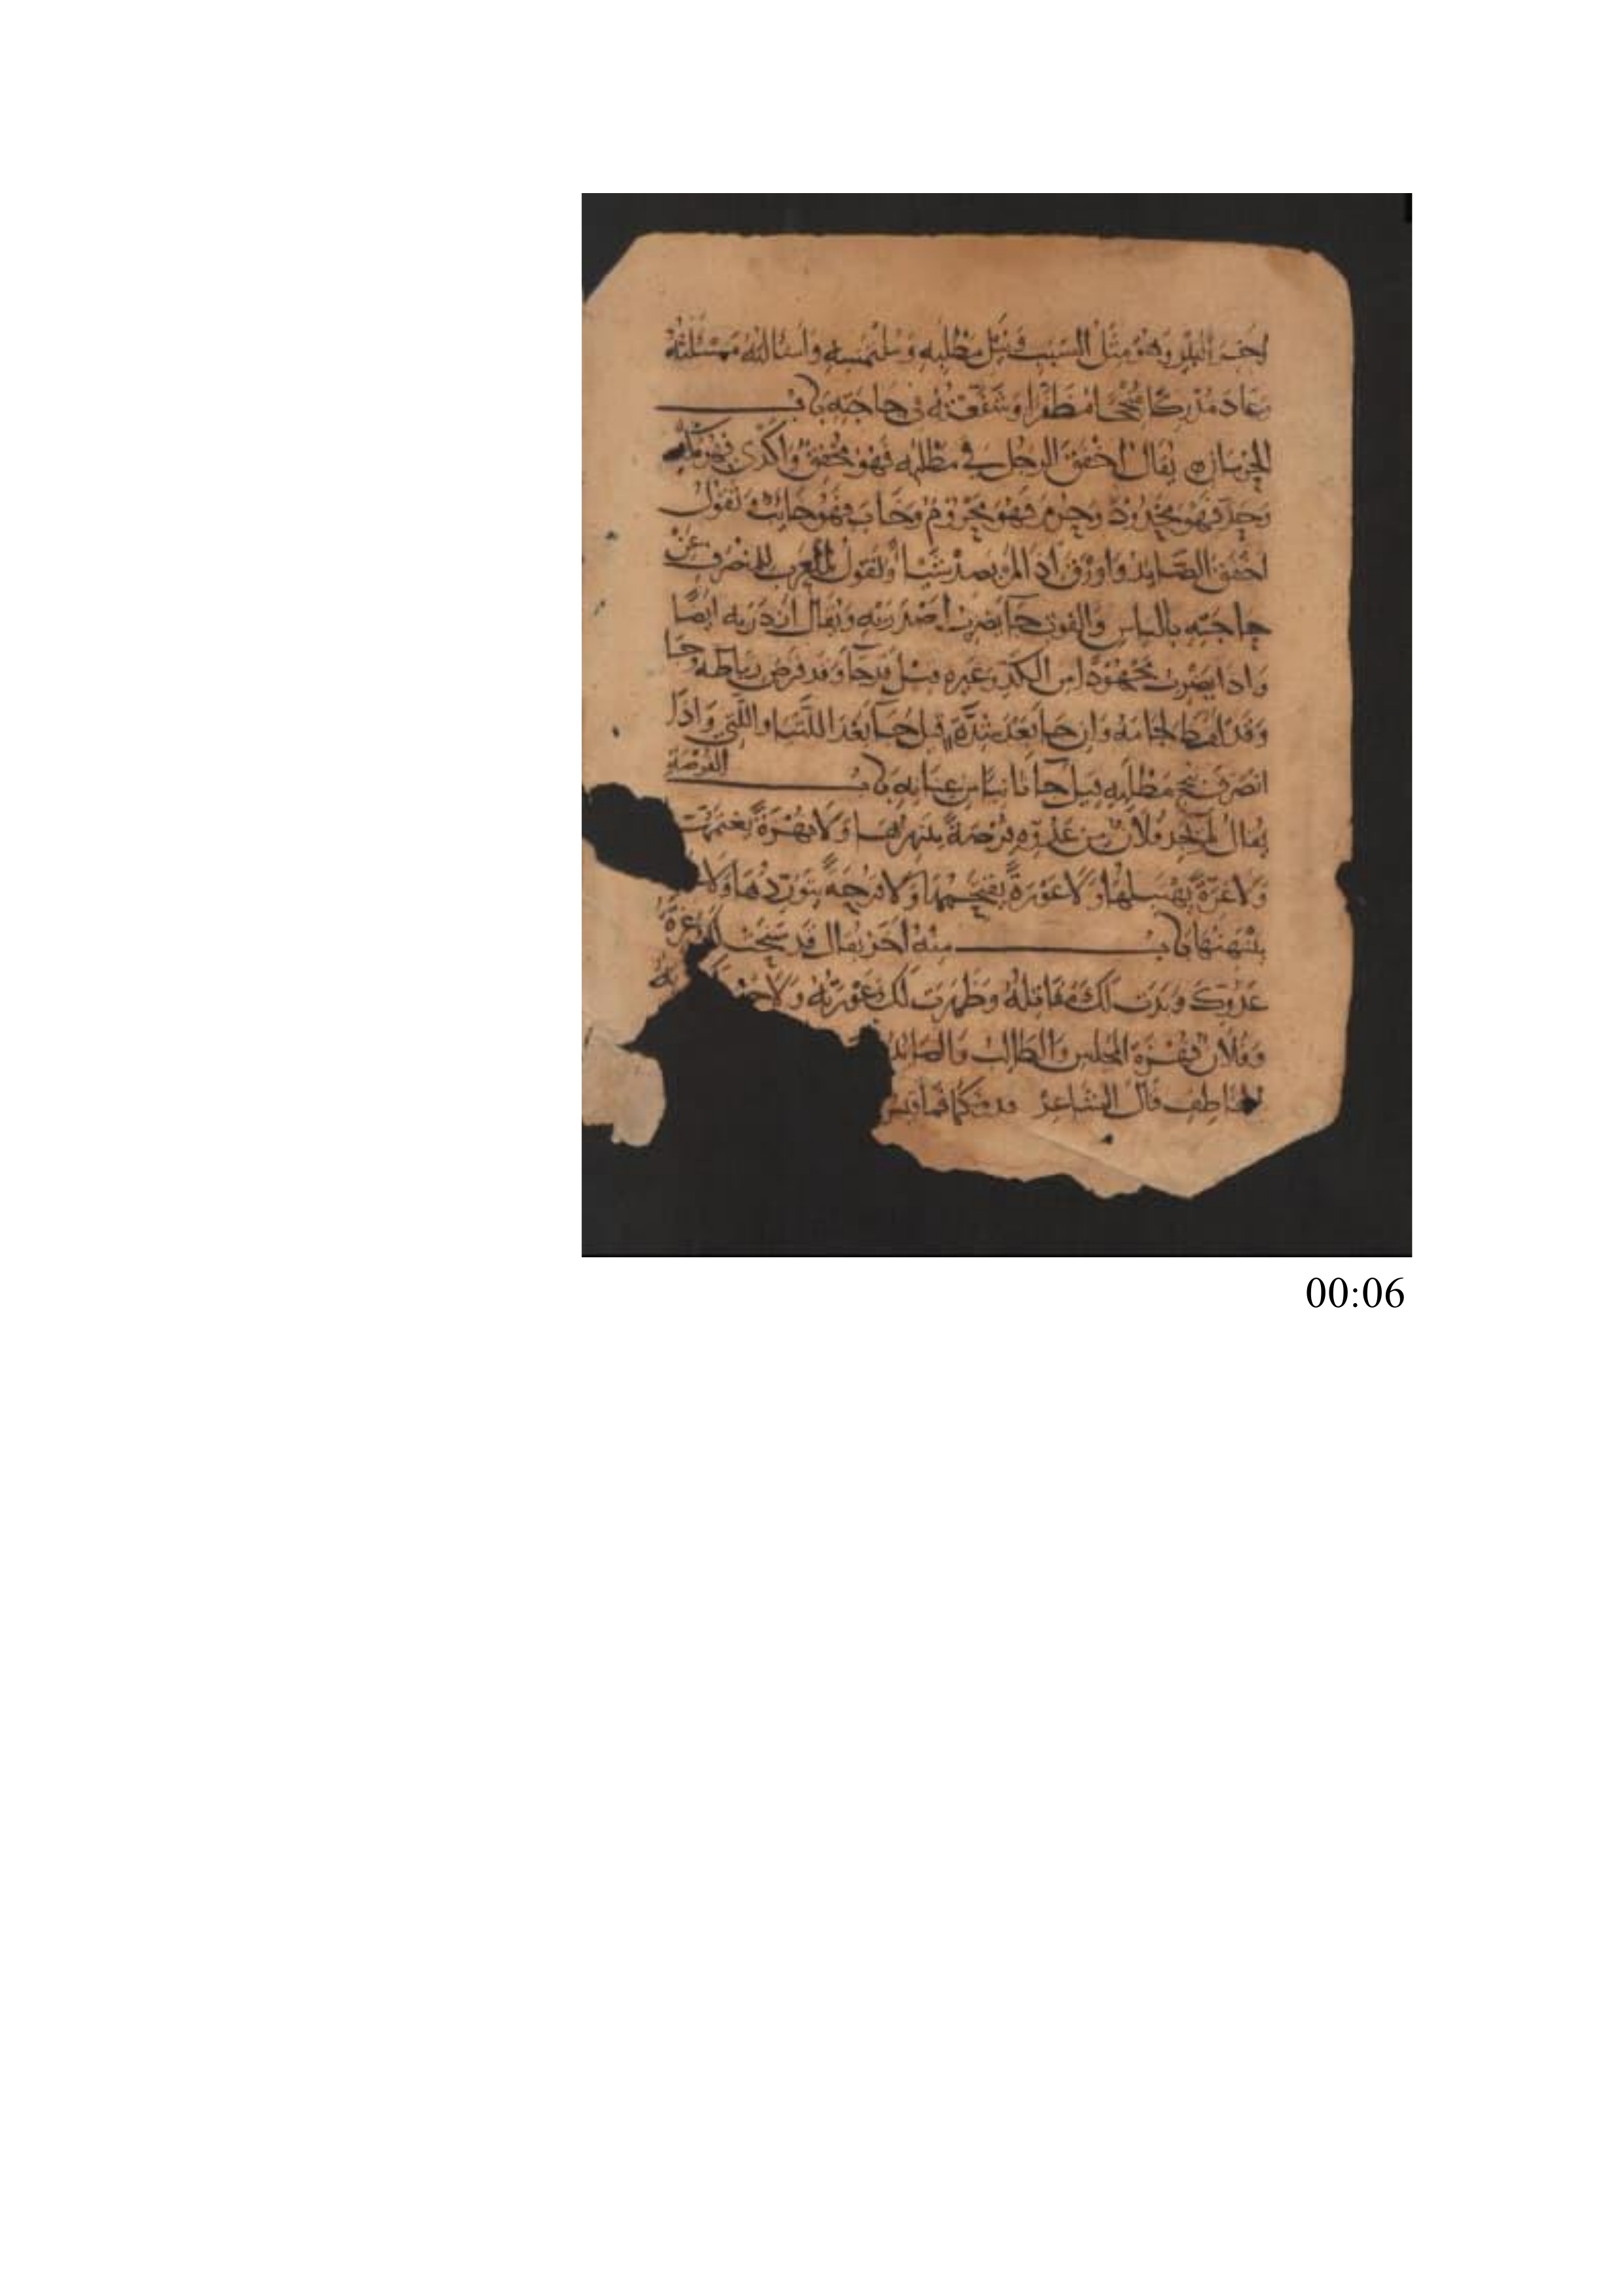 وهو مثل السبب فى نيل مطلبه وملتمسه
وعاد مدركا منجحا مظفرا وشفعته فى حاجته باب
الحرمان يقال اخفق الرجل في مطلبه فهو مخفق واكدى فهو مكد
وحد فهو محدود وحرم فهو محروم وخاب فهو خائب وتقول
اخفق الصائد واورق اذا لم يصد شيا وتقول العرب للمنصرف عن
حاجته بالياس والفوت جا يضرب اصدريه ويقال ازدريه ايضا
واذا انصرف مجهودا من الكد وغيره قيل قد جا وقد قرض رباطه جا
وقد لفظ لجامه وان جا بعد شدة قيل جا بعد اللتيا واللتي واذا
انصرف بنجح مطلبه قيل جا ثانيا من عنانه باب الفرصة
يقال لم يجد فلان من عدوه فرصة ينتهزها ولا نهزة يغتنمها
ولا غرة يهتبلها ولا عورة يقتحمها ولا فرجة يتوردها ولا
باب منه اخر يقال قد سنحت لك غرة
عدوك وبدت لك مقاتله وظهرت لك عورته ولاحت
وفلان نهزة المختلس والطالب والصائد
الخاطف قال الشاعر
00:06